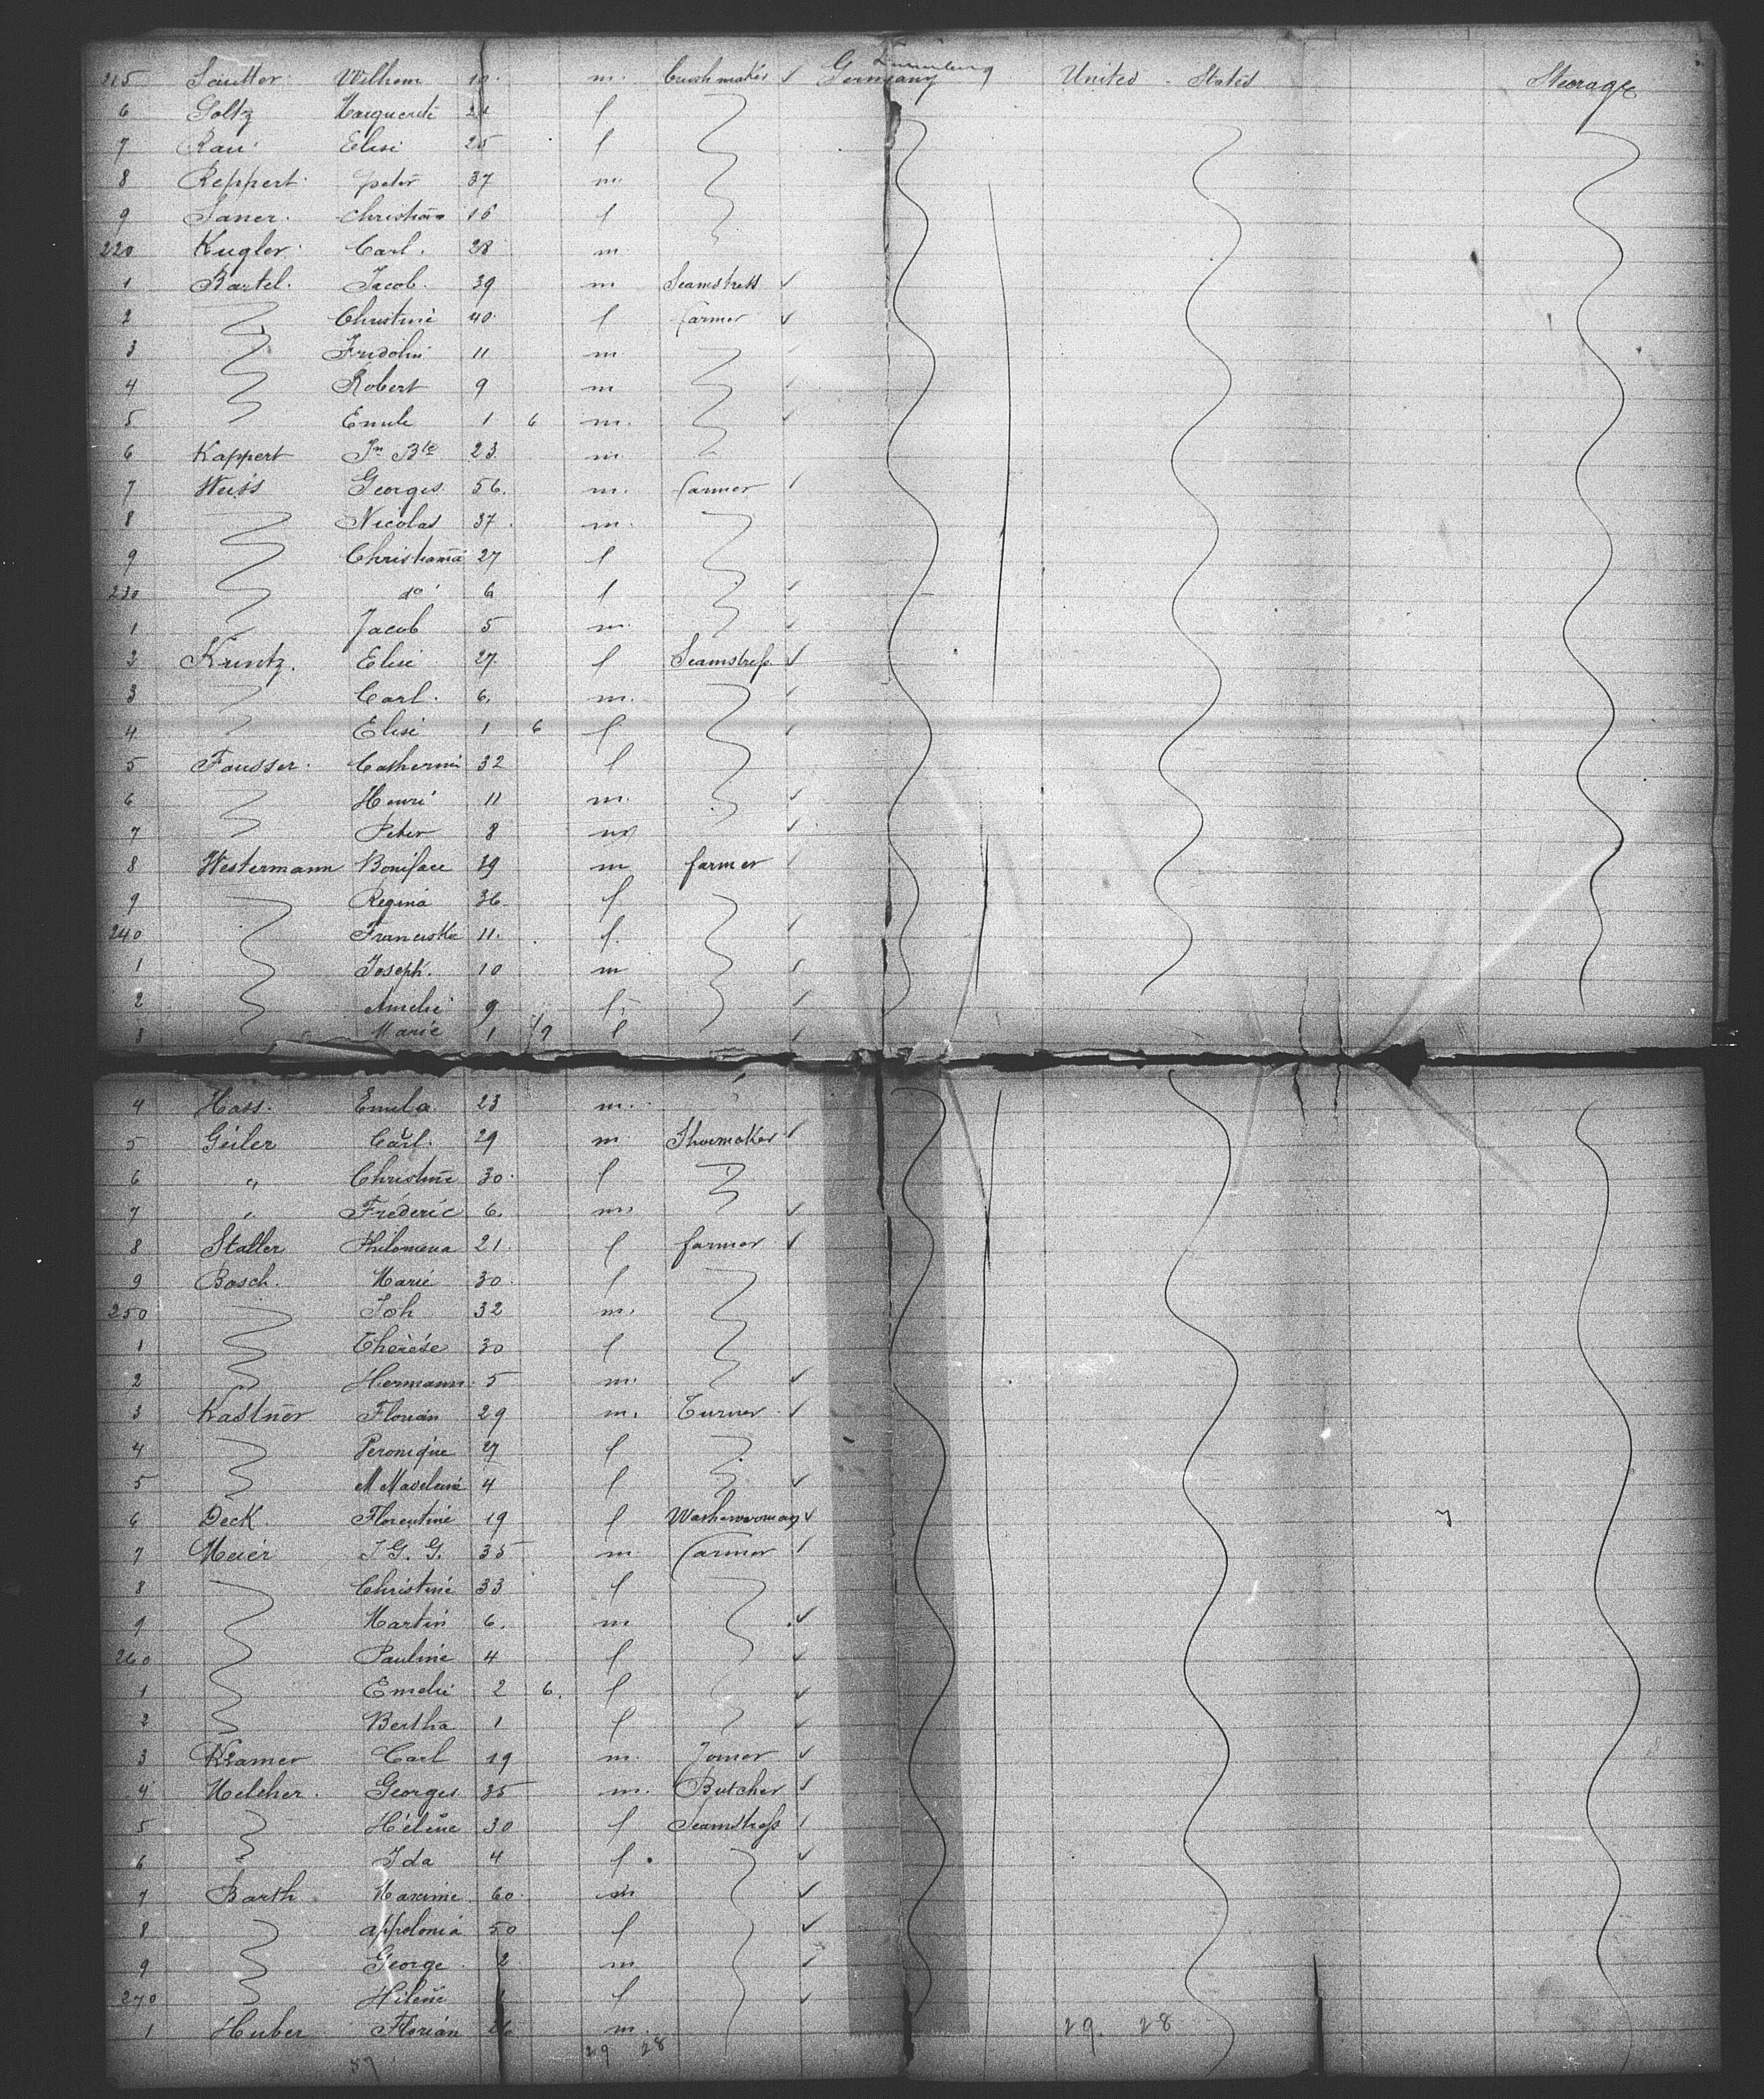 215 Sautter Wilhem m. Brushmaker Germany United States Steerage
6 Soltz Marguerite f
7 Rau Elise 25 f
8 Reppert peter 37 m
9 Saner Christian 16 f
220 Kugler Carl. 28 m
1 Bartel. Jacob. 39 m Seamstress
2 Christine 40 f farmer
3 Fridolin 11 m
4 Robert 9 m
5 Emile 1 6 m.
6 Kappert Jn Bte 23 m
7 Weiss Georges 56. m. farmer
8 Nicolas 37 m.
9 Christiana 27 f
230 do 6 f
1 Jacob 5 m
2 Kuntz. Elise 27. f Seamstress
3 Carl. 6. m.
4 Elise 1 6 f
5 Fausser. Catherine 32 f
6 Henri 11 m.
7 Peter 8 m
8 Westermann Boniface 39 m farmer
9 Regina 36 f
240 Franciska 11. f.
1 Joseph. 10 m
2 Amelie 9 f
3 Marie 1 f
4 Hass. Emila 23 m.
5 Geiler Carl. 29 m Shoemaker
6 " Christine 30. f
7 " Fréderic 6. m.
8 Staller Philomena 21. f farmer
9 Bosch. Marie 30. f
250 Joh 32 m.
1 Thérèse 30 f
2 Hermann. 5 m.
3 Kastner Florian 29 m. Turner
4 Peronique 27 f
5 M Madeleine 4 f
6 Deck. Florentine 19 f Washerwoman
7 Meier J G. G. 35 m. farmer
8 Christine 33 f
9 Martin 6. m
260 Pauline 4 f
1 Emelie 2 6. f
2 Bertha 1 f
3 Kramer Carl 19 m. Joiner
4 Melcher. Georges 35 m. Butcher
5 Hélène 30 f Seamstress
6 Ida 4 f
7 Barth. Maxime 60. m
8 appolonia 50 f
9 George 2 m
270 Hilene f
1 Huber Florian m.
29 28 29. 28